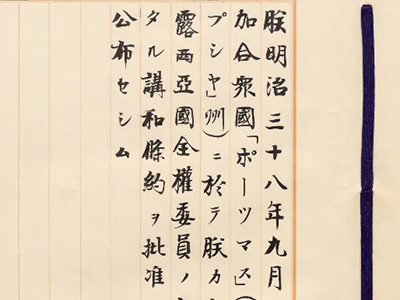 朕明治三十八年九月
加合衆國「ポーツマス」(
プシヤ」州)ニ於テ朕カ
露西亞國全權委員ノ
タル講和條約ヲ批准
公布セシム